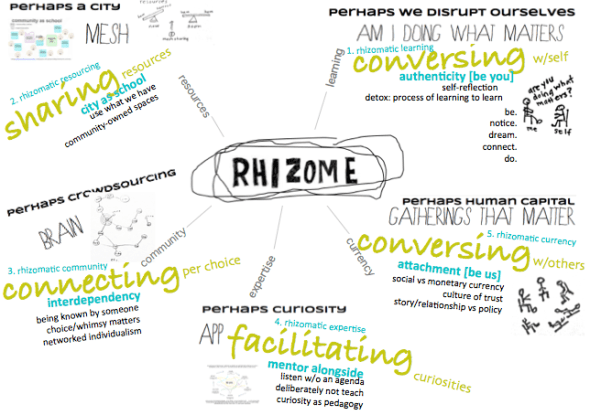 perhaps a city
community as school
MESH
2. rhizomatic resourcing
sharing resources
city as school
use what we have
community owned spaces
resources
perhaps we disrupt ourselves
AM I DOING WHAT MATTERS
1. rhizomatic learning
conversing w/self
authenticity [be you]
self-reflection
detox: process of learning to learn
be.
notice.
dream.
connect.
do.
are you
doing what
matters?
me
self
learning
RHIZOME
perhaps crowdsourcing
BRAIN
3. rhizomatic community
connecting per choice
interdependency
being known by someone
choice/whimsy matters
networked individualism
community
expertise
perhaps curiosity
APP
4. rhizomatic expertise
facilitating curiosities
mentor alongside
listen w/o an agenda
deliberately not teach
curiosity as pedagogy
currency
perhaps human capital
GATHERINGS THAT MATTER
5. rhizomatic currency
conversing w/others
attachment [be us]
social vs monetary currency
culture of trust
story/relationship vs policy